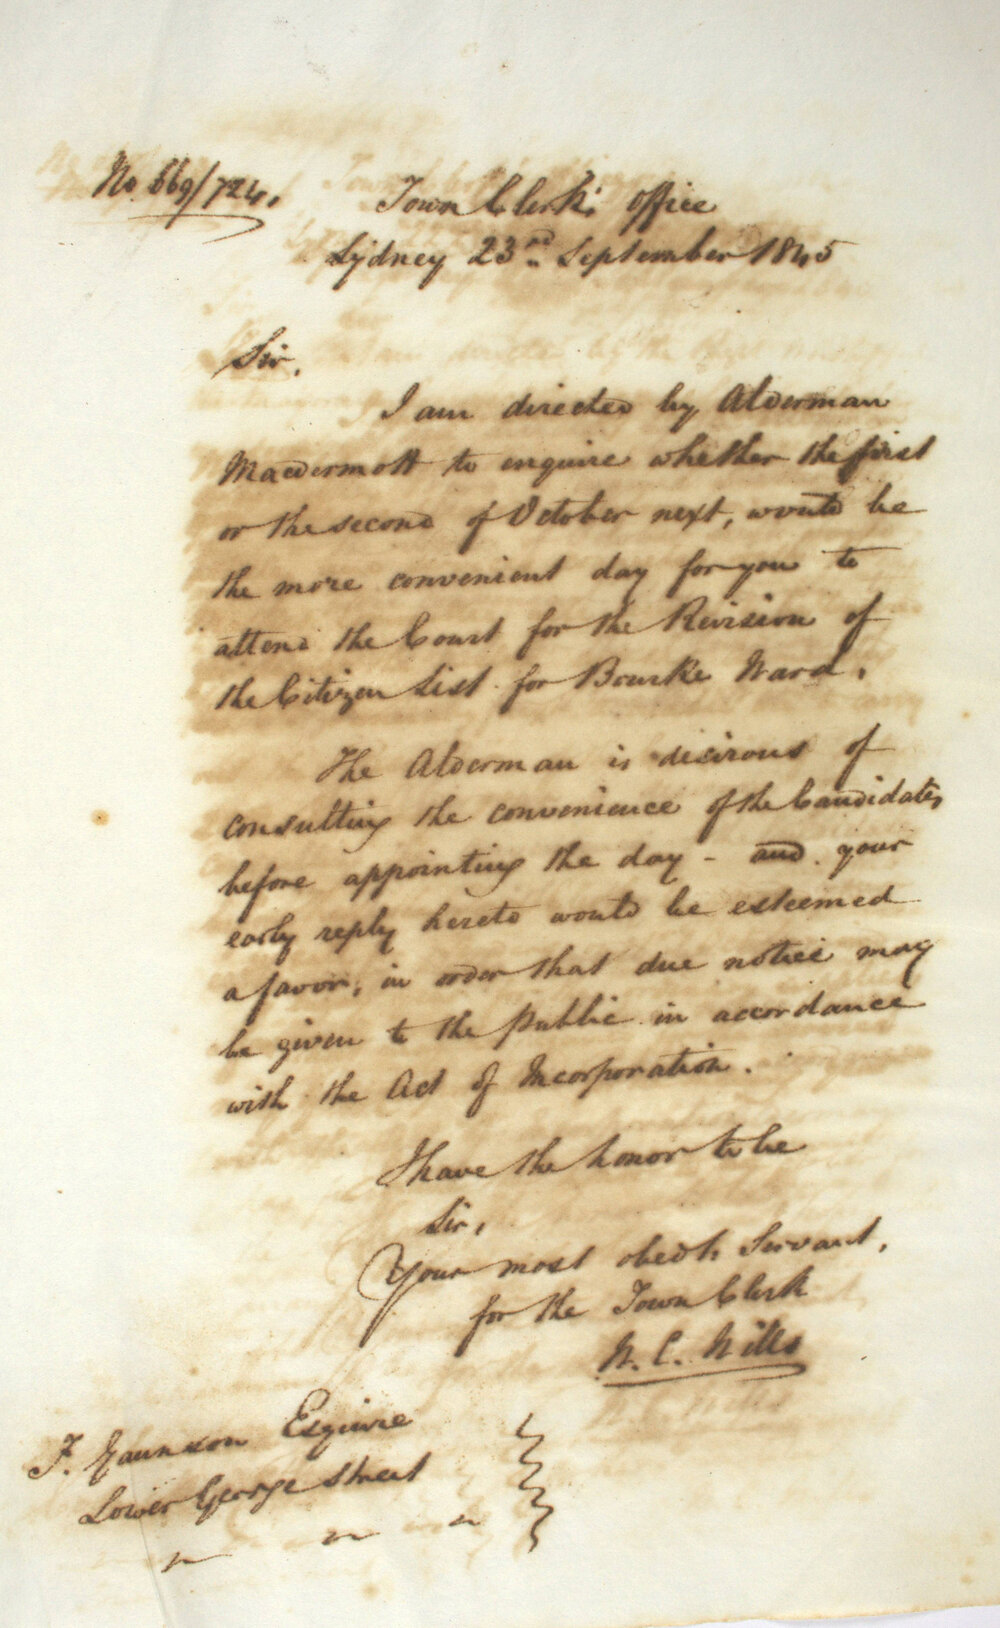 No. 669/724.
Town Clerk's Office
Sydney 23rd September 1845
Sir,
I am directed by Alderman
Macdermott to enquire whether the first
or the second of October next, would be
the more convenient day for you to
attend the Court for the Revision of
the Citizen List for Bourke Ward.
The Alderman is desirous of
consulting the convenience of the Candidates
before appointing the day - and your
early reply hereto would be esteemed
a favor, in order that due notice may
be given to the public in accordance
with the Act of Incorporation.
I have the honor to be
Sir,
Your most obedt. Servant,
for the Town Clerk
W. C. Wills
F. Gaunson Esquire
Lower George Street